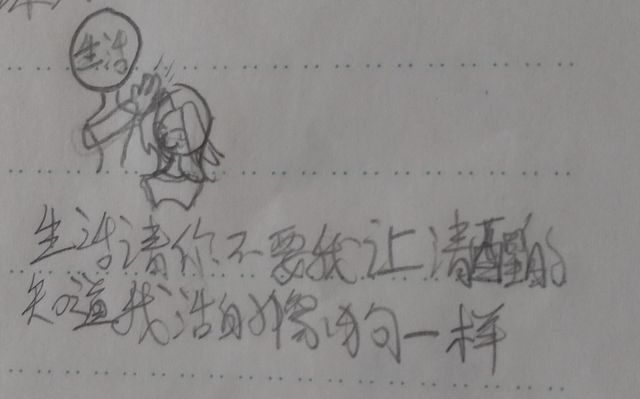 生活
生活请你不要我让清醒的
知道我活的像狗一样